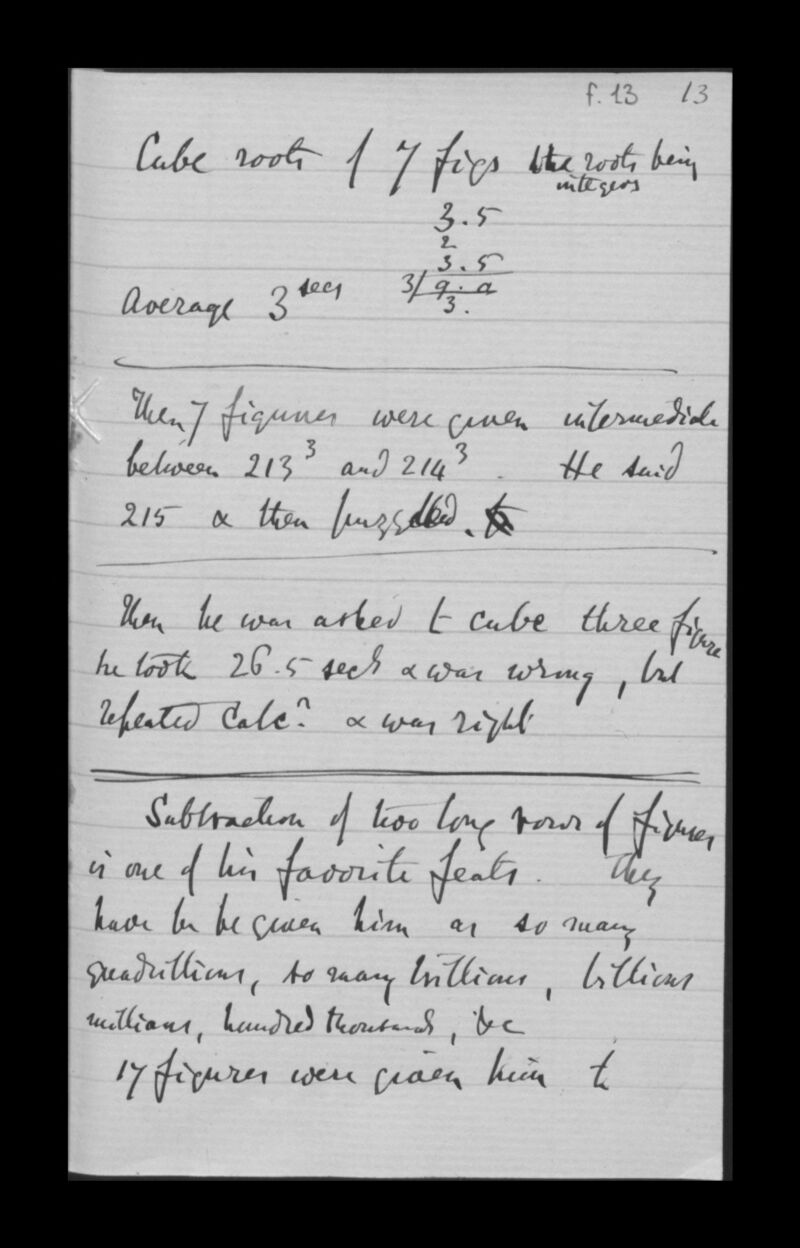 f. 13 13
Cube roots of 7 figs the roots being
integers
3.5
2
3.5
Average 3 secs 3/9.0
3.
Then 7 figures were given intermediate
between 213³ and 214³. He said
215 & then puzzled.
Then he was asked to cube three figure
he took 26.5 secs & was wrong, but
repeated calcⁿ & was right
Subtraction of two long rows of figures
is one of his favorite feats. They
have to be given him as so many
quadrillions, so many trillions, billions
millions, hundred thousands, &c
17 figures were given him to